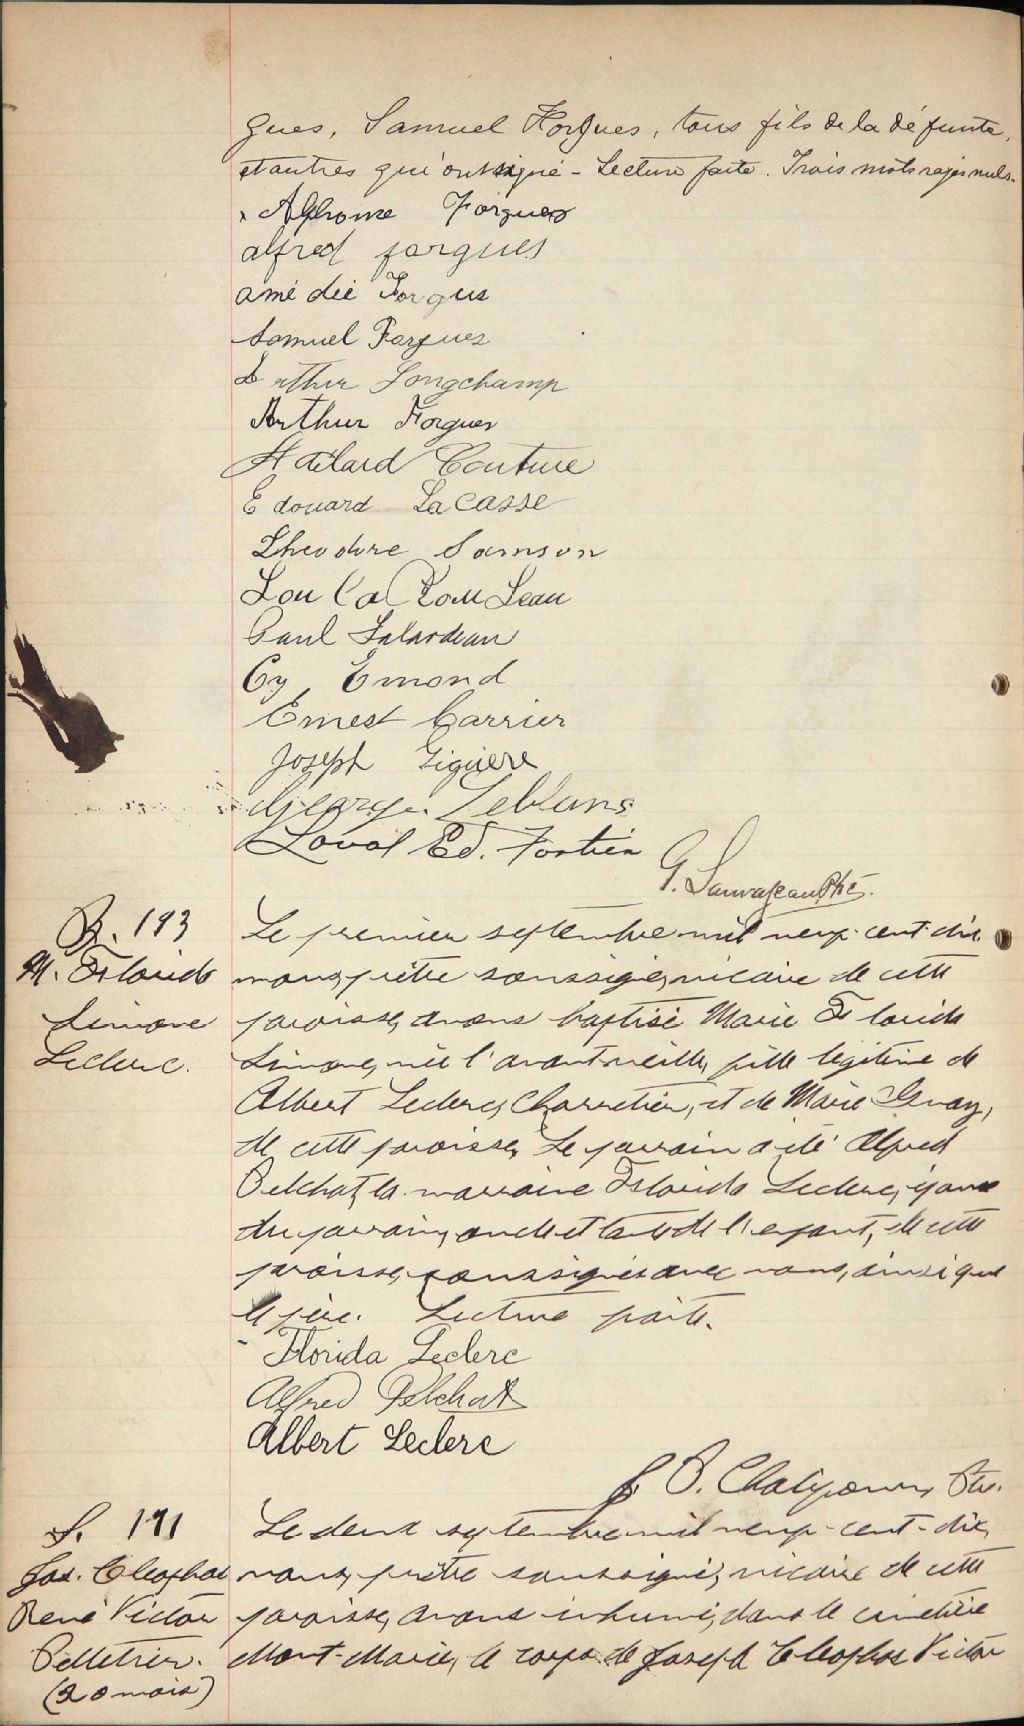 gues, Samuel Forgues, tous fils de la défunte,
et autres qui ont signé - Lecture faite. Trois mots rayés nuls.
x Alphonse Forgues
alfred forgues
amé déé Forgus
Samuel Forgues
Longchamp
Arthur Forgues
Couture
Edouard LaCasse
Theodore Samson
Paul
Cy Emond
Ernest Carrier
Joseph Giguère
George
Laval Ed. Fortier
G. Sauvageau Ptre.
B. 193
M. Florida
Simone
Leclerc.
Le premier septembre mil neuf-cent-dix
nous, prêtre soussigné, vicaire de cette
paroisse, avons baptisé Marie Florida
Simone, née l'avant veille, fille légitime de
Albert Leclerc, Charretier, et de Marie Guay,
de cette paroisse. Le parrain a été Alfred
Pelchat, la marraine Florida Leclerc, épouse
du parrain, oncle et tante de l'enfant, de cette
paroisse, soussignés avec nous, ainsi que
le père. Lecture faite.
Florida Leclerc
Alfred Pelchat
Albert Leclerc
P. Ptre.
S. 191
Jos. Cleophas
René Victor
Pelletier.
(20 mois)
Le deux septembre mil neuf-cent-dix,
nous, prêtre soussigné, vicaire de cette
paroisse, avons inhumé, dans le cimetière
Mont-Marie, le corps de Joseph Cleophas Victor